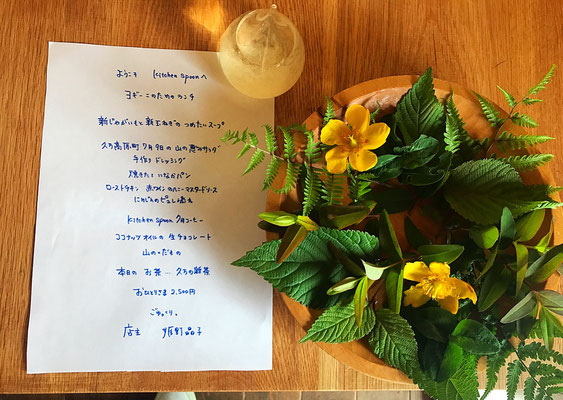 ようこそ kitchen spoonへ
ヨギーニのためのランチ
新じゃがいもと新玉ねぎの つめたいスープ
久万高原町 7月9日の 山の恵みサラダ
手作り ドレッシング
焼きたて いなかパン
ローストチキン 赤ワインのハニーマスタードソース
にんじんのピュレ 添え
kitchen spoon 7月コーヒー
ココナッツオイルの 生チョコレート
山のくだもの
本日の お茶… 久万の新茶
おひとりさま 2,500円
ごゆっくり。
店主